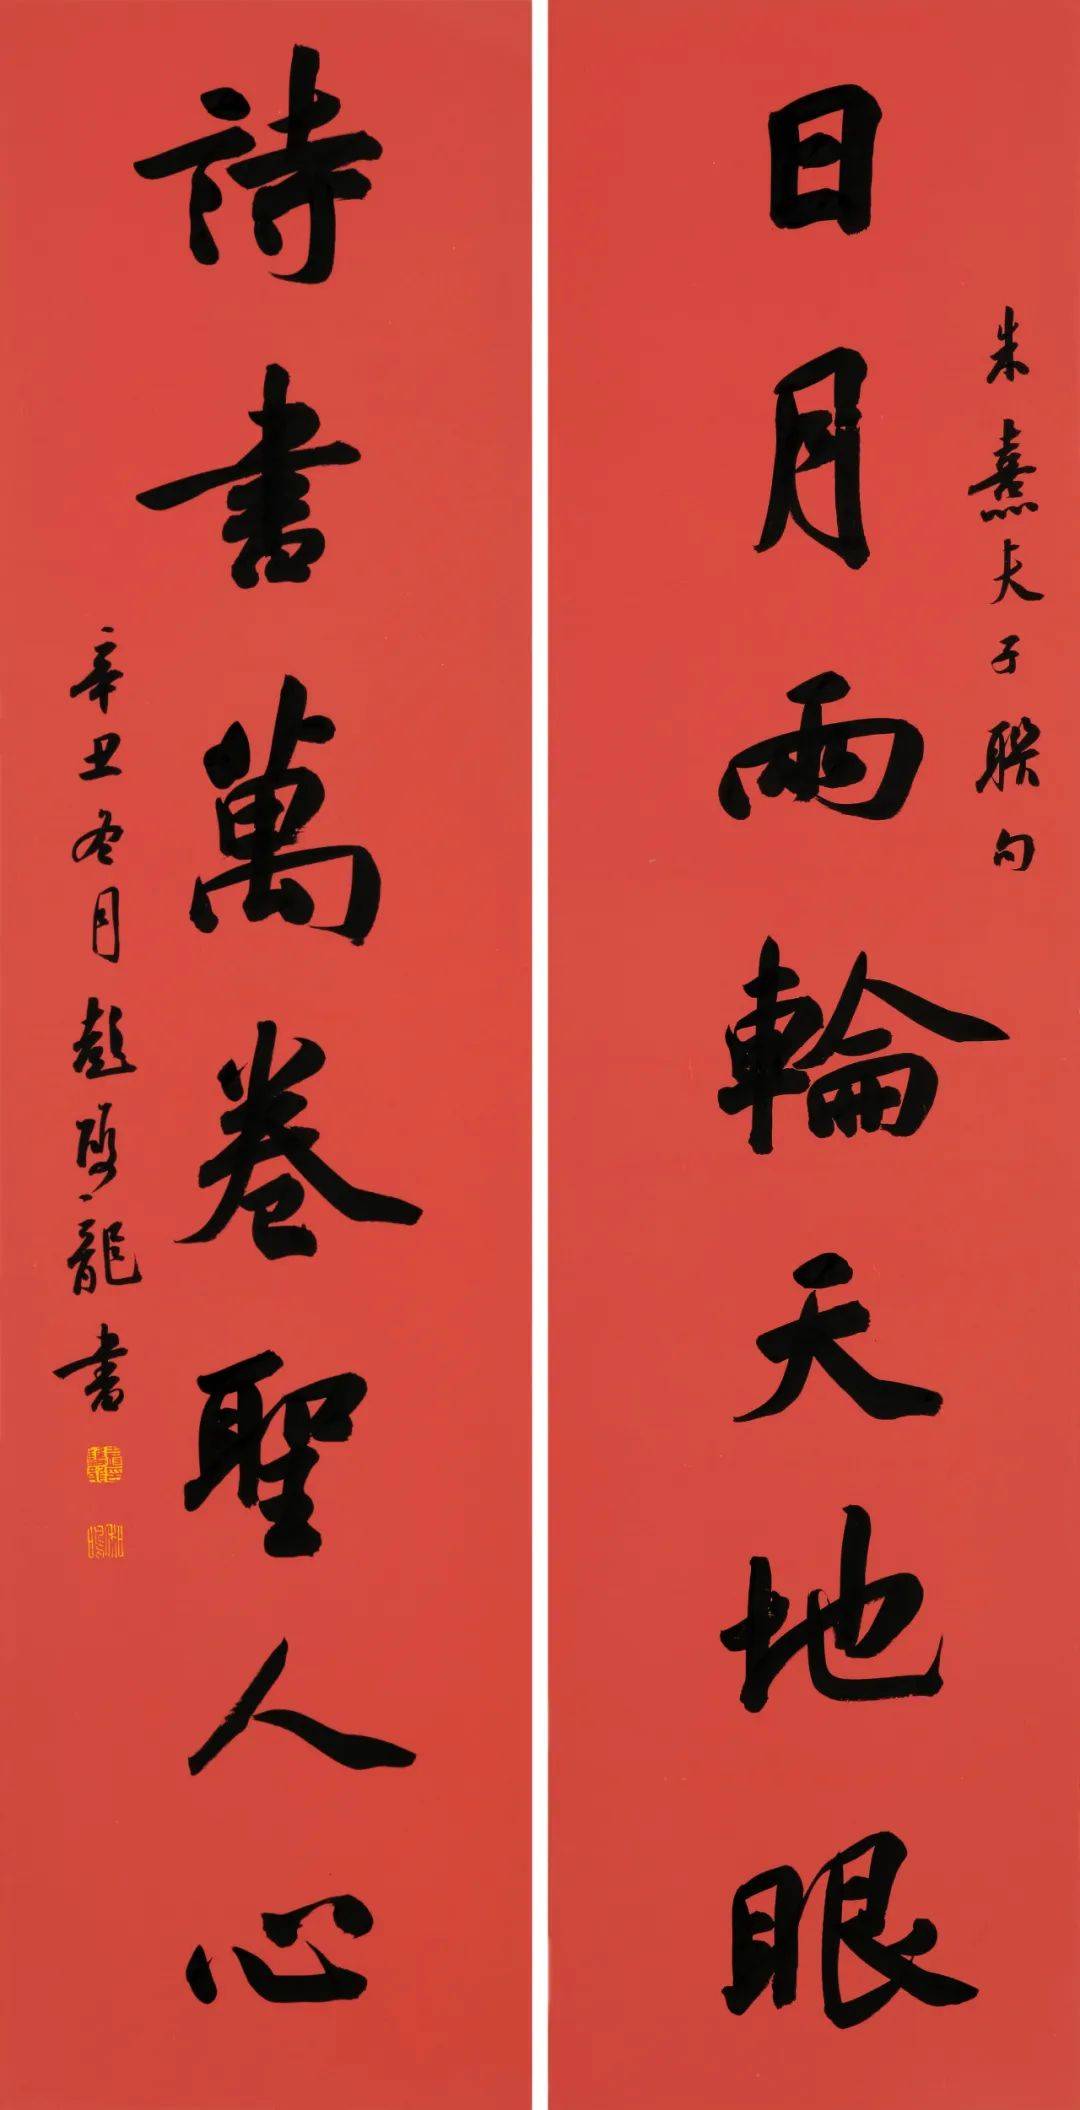 朱熹夫子联句
日月兩輪天地眼
詩書萬卷聖人心
辛丑冬月彭双龍書